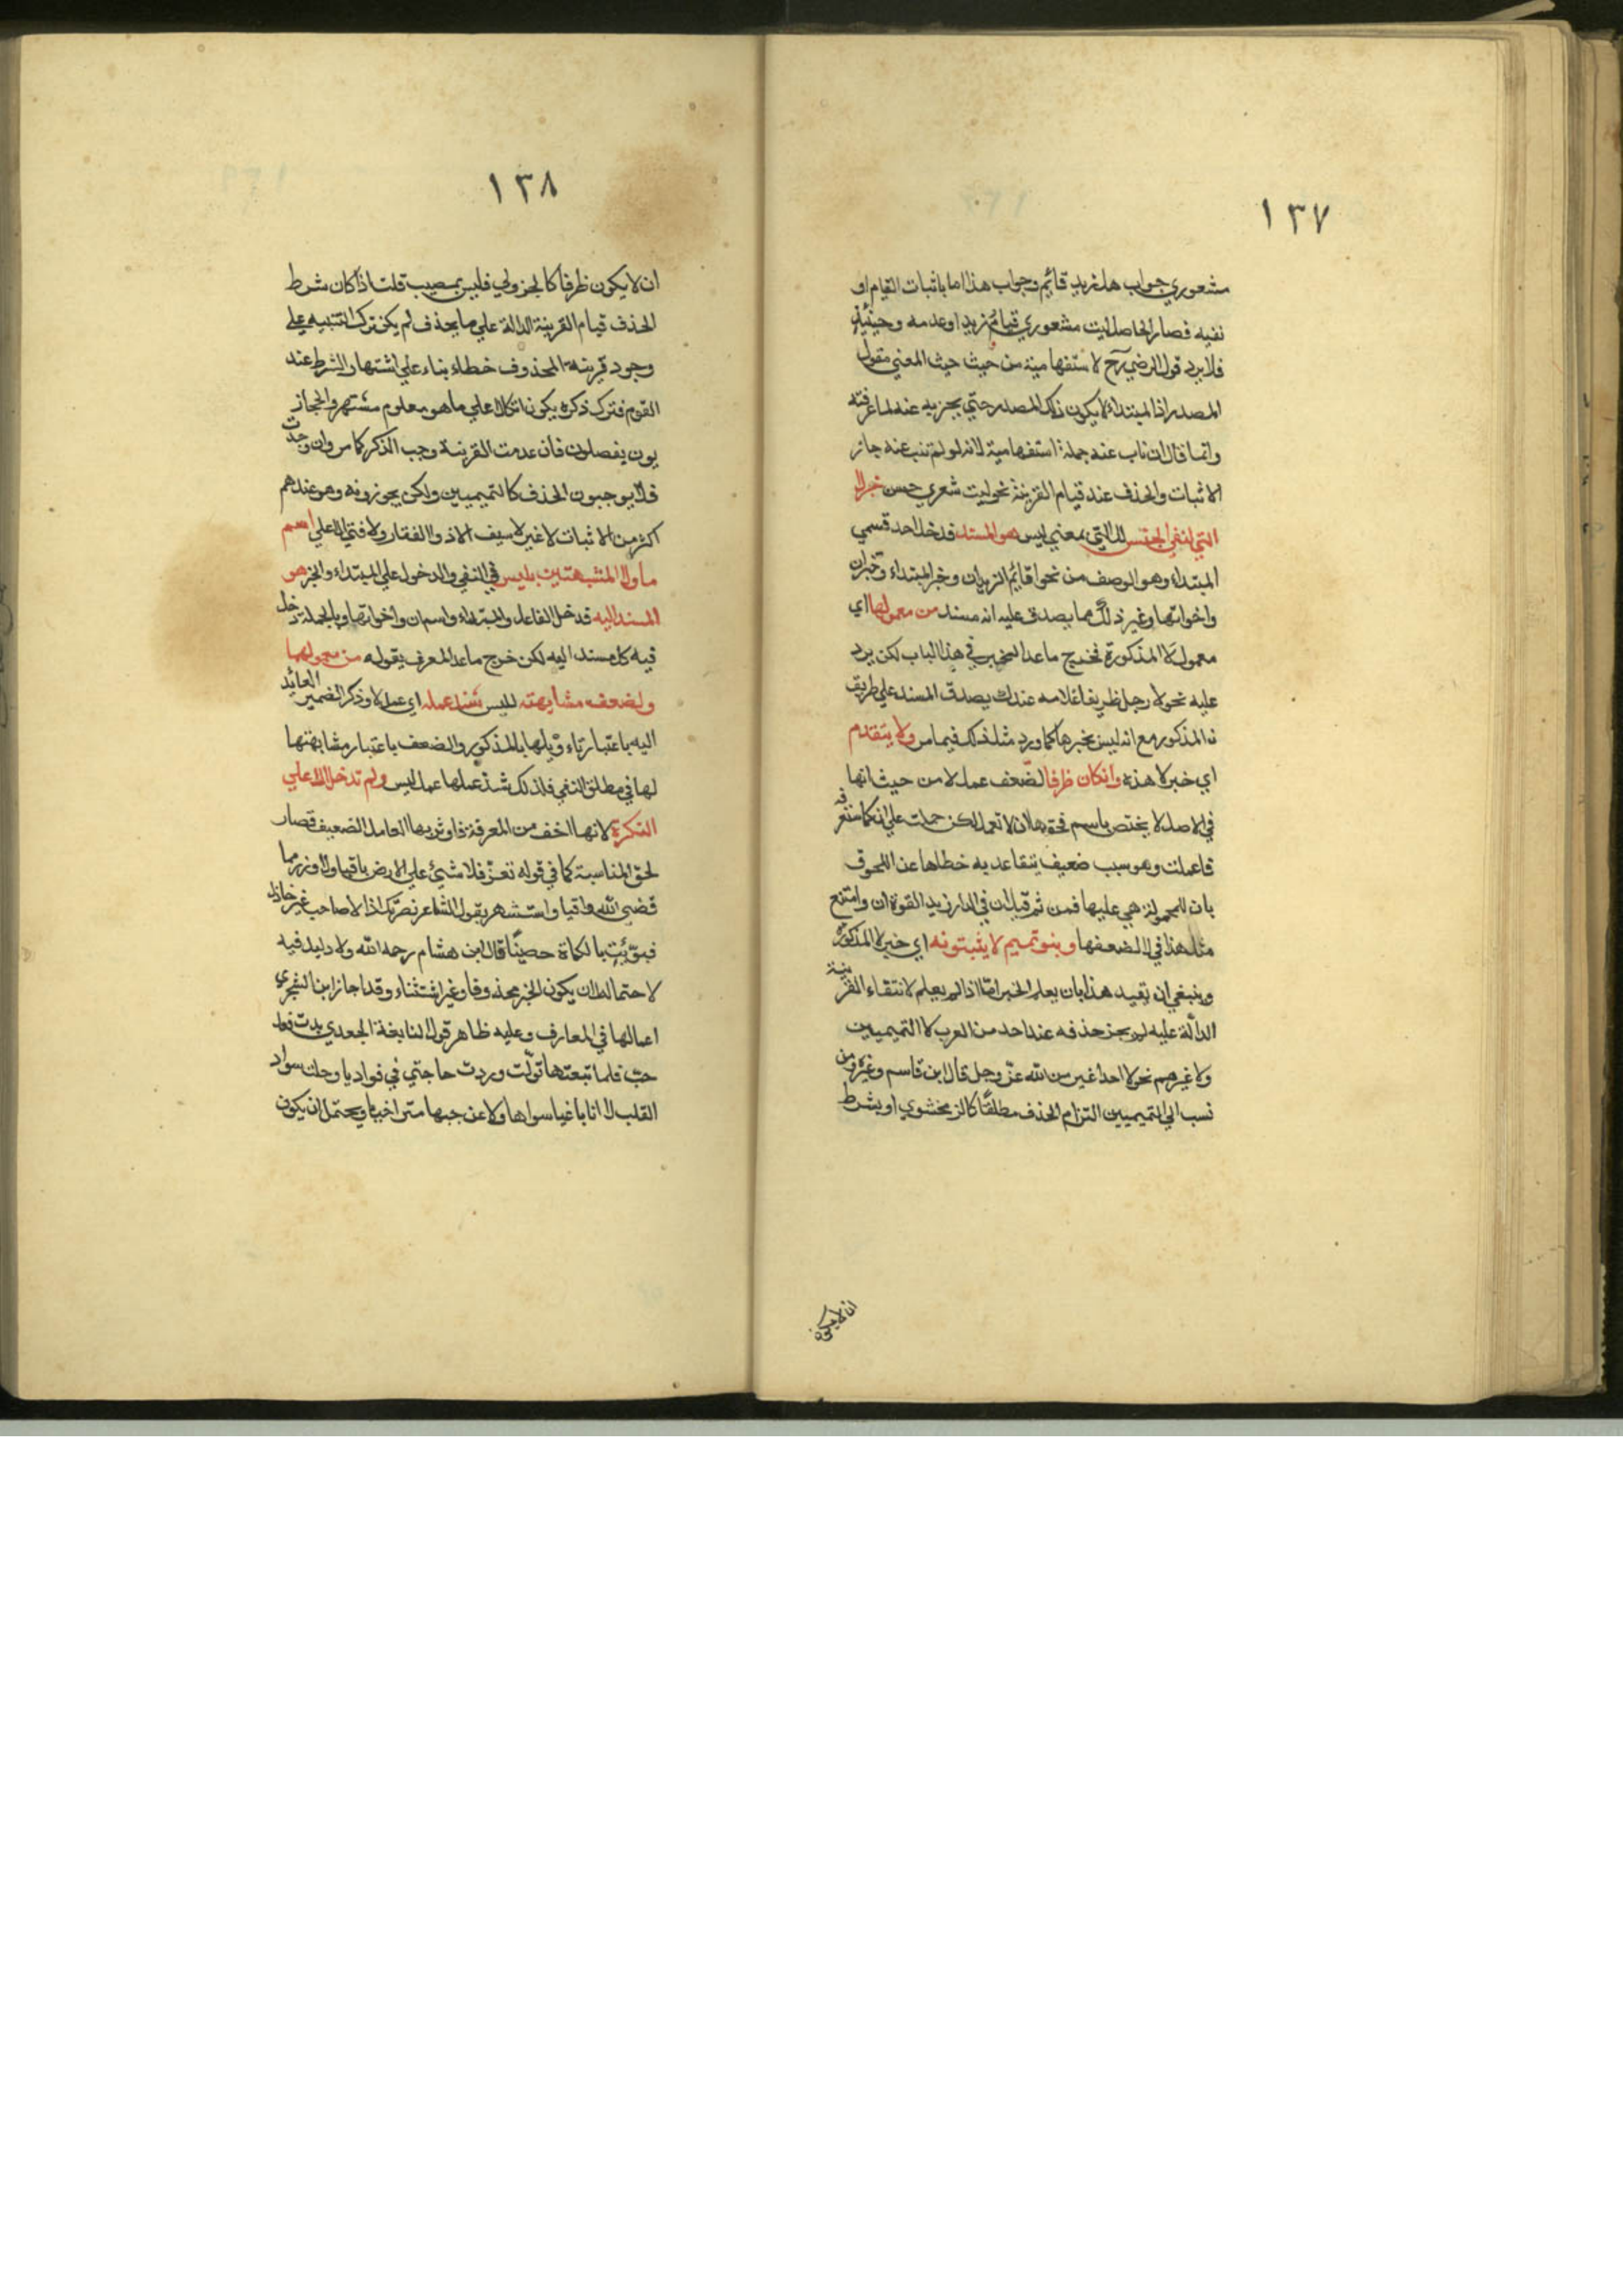 ١٣٧
مشعوري جواب هل زيد قائم وجواب هذا اما باثبات القيام او
نفيه فصار الحاصل ليت مشعوري قيام زيد او عدمه وحينئذ
فلا يرد قول الرضي رح لاستفهامية من حيث حيث المعني مقول
المصدر اذ المبتداء لا يكون ذلك المصدر حتي يخبر به عنه لما عرفته
وانما قال ان ناب عنه جملة استفهامية لانه لو لم تنب عنه جاز
الاثبات والحذف عند قيام القرينة نحو ليت شعري حسن خبر لا
التي لنفي الجنس لا التي بمعني ليس هو المسند قد خل احد قسمي
المبتداء وهو الوصف من نحو اقائم الزيدان وخبر المبتداء وخبر ان
واخواتها وغير ذلك مما يصدق عليه انه مسند من معموليها اي
معمولي لا المذكورة فخرج ماعدا المخبر في هذا الباب لكن يرد
عليه نحو لا رجل ظريفا غلامه عندك يصدق المسند علي ظريف
نا المذكور مع انه ليس بخبرها كما ورد مثل ذلك فيما مر ولا يتقدم
اي خبر لا هذه وانكان ظرفا لضعف عمل لا من حيث انها
في الاصل لا يختص باسم فحقها ان لا تعمل لكن حملت علي ان كما ستعرفه
فاعملت وهو سبب ضعيف يتقاعد به خطاها عن اللحوق
بان المحمولة هي عليها فمن ثم قيل ان في الدار زيد القوة ان وامتنع
مثل هذا في لا لضعفها وبنو تميم لا يثبتونه اي خبر لا المذكورة
وينبغي ان تقيد هذا بان يعلم الخبر امّا اذا لم يعلم لانتقاء القرينة
الدالّة عليه لم يجز حذفه عند احد من العرب لا التميميين
ولا غيرهم نحو لا احد اغير من الله عزّ وجل قال ابن قاسم وغيره ومن
نسب الي التميميين التزام الحذف مطلقا كالزمخشوي او بشرط
ان لا يكون
١٣٨
ان لا يكون ظرفا كالجزولي فليس بمصيب قلت اذا كان شرط
الحذف قيام القرينة الدالة علي ما يحذف لم يكن ترك التنبيه علي
وجود قرينة المحذوف خطاء بناء علي اشتهار الشرط عند
القوم فترك ذكره يكون اتكالا علي ما هو معلوم مشتهر والحجاز
يون يفصلون فان عدمت القرينة وجب الذكر كما مر وان وجدت
فلا يوجبون الحذف كالتميميين ولكن يجوزونه وهو عندهم
اكثر من الاثبات لا غير لا سيف الا ذو الفقار ولا فتي الا علي اسم
ما ولا المشبهتين بليس في النفي والدخول علي المبتداء والخبر هو
المسند اليه قد خل الفاعل والمبتداء واسم ان واخواتها وبالجملة دخل
فيه كل مسند اليه لكن خرج ماعدا المعرف بقوله من معموليهما
ولضعف مشابهته لليس شذ عمله اي عمل لا وذكر الضمير العائد
اليه باعتبار تاء ويلها بالمذكور والضعف باعتبار مشابهتها
لها في مطلق النفي فلذلك شذ عملها عمل ليس ولم تدخل الا علي
النكرة لانها اخف من المعرفة فاوثر بها العامل الضعيف قصار
لحق المناسبة كما في قوله تعزّ فلا شيئ علي الارض باقيا ولا وزر مما
قضي الله واقيا واستشهر بقول الشاعر نصرتك اذ لا صاحب غير خاذل
فبوّئت بالكماة حصينا قال ابن هشام رحمه الله ولا دليل فيه
لاحتمال ان يكون الخبر محذوفا وغير استثناء وقد اجاز ابن الشجري
اعمالها في المعارف وعليه ظاهر قول النابغة الجعدي بدت فعل
حبّ فلما تبعتها تولّت وردت حاجتي في فواديا وحلت سواد
القلب لا انا باغيا سواها ولا عن حبها متراخيا ويحتمل ان يكون